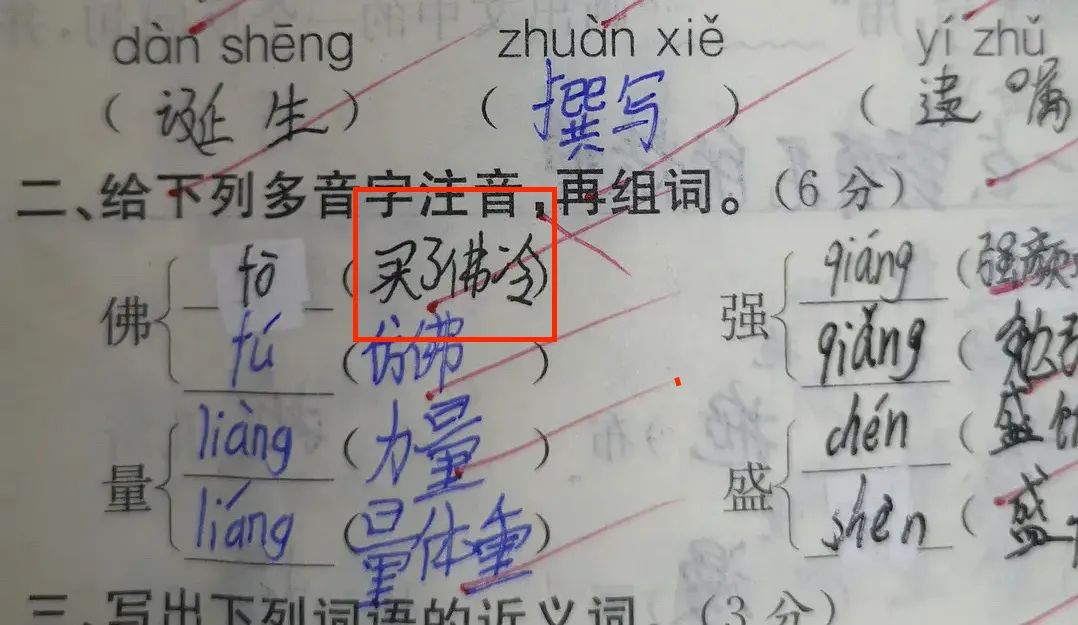 dàn shēng zhuàn xiě yí zhǔ
(诞生) (撰写) (遗嘱
二、给下列多音字注音,再组词。(6分)
佛 fō (买了佛冷) 强 qiáng (强颜
fú (仿佛) qiǎng (勉强
量 liàng (力量) 盛 chén (盛饭
liáng (量体重) shèn (盛
三、写出下列词语的近义词。(3分)